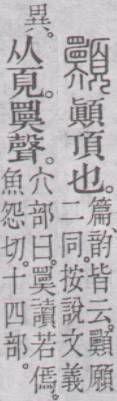 顚頂也。
篇、韵皆云。願
二同。按說文義
異。
从頁。聲。
穴部曰。讀若傿。
魚怨切。十四部。